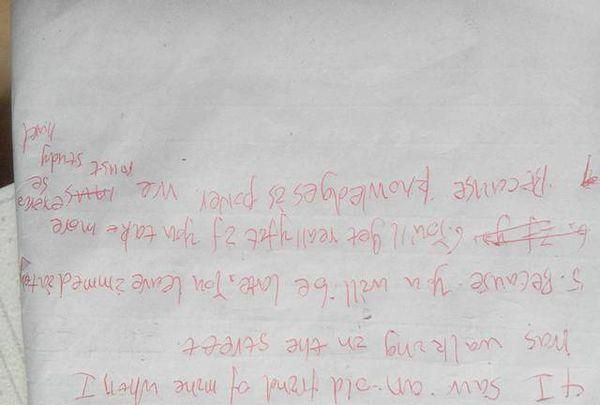 4 I saw an old friend of mine when I
was walking in the street.
5. Because you will be late, You leave
6. You'll get really fat if you take more
Because knowledges is power, we
must study
hard